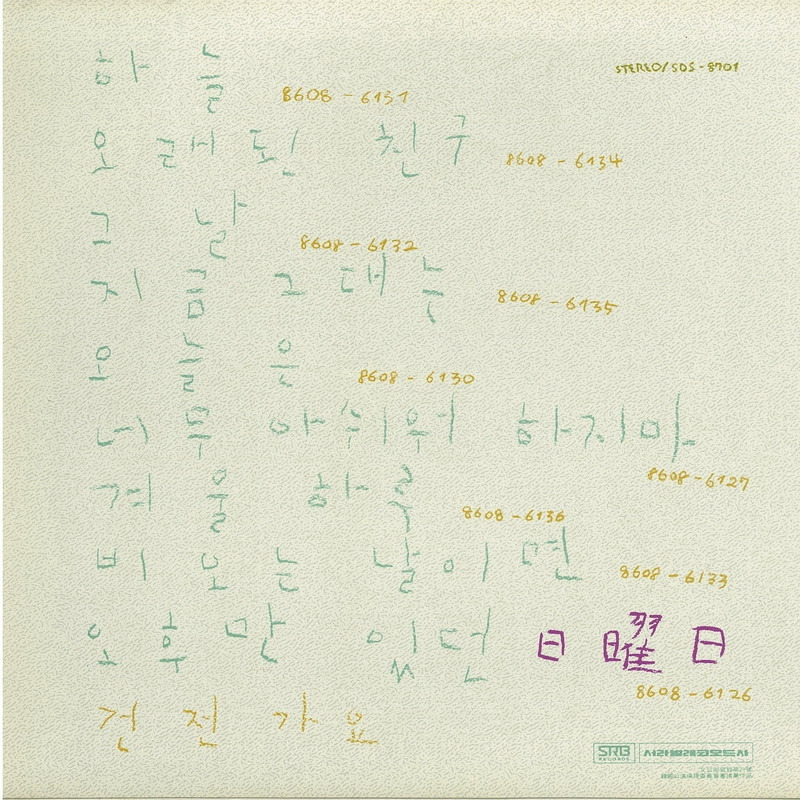 STEREO/SDS-8701
하늘
8608-6131
오래된 친구
8608-6134
그날
8608-6132
지금 그대는
8608-6135
오늘은
8608-6130
너무 아쉬워 하지마
8608-6127
겨울하루
8608-6136
비오는 날이면
8608-6133
오후만 있던 日曜日
8608-6126
건전가요
SRB RECORDS 서라벌레코오드사